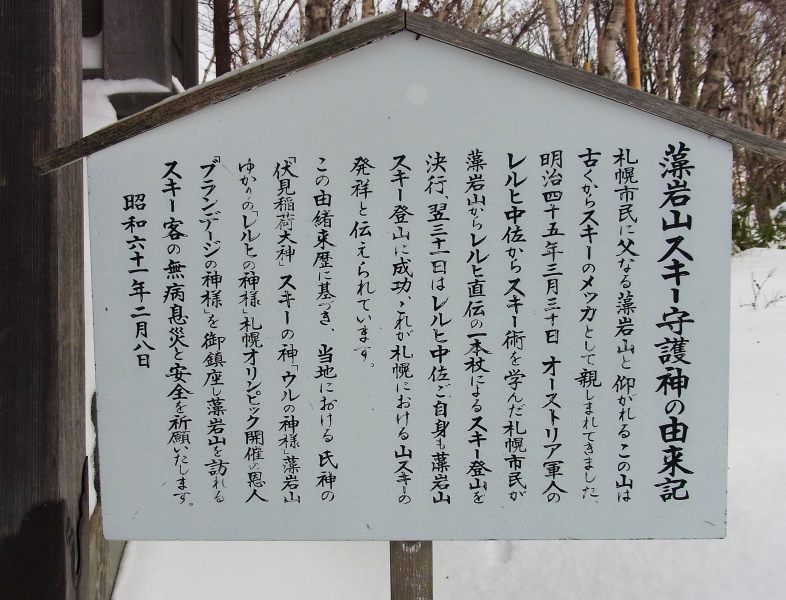 藻岩山スキー守護神の由来記
札幌市民に父なる藻岩山と仰がれるこの山は
古くからスキーのメッカとして親しまれてきました、
明治四十五年三月三十日 オーストリア軍人の
レルヒ中佐からスキー術を学んだ札幌市民が
藻岩山からレルヒ直伝の一本杖によるスキー登山を
決行、翌三十一日はレルヒ中佐ご自身も藻岩山
スキー登山に成功、これが札幌における山スキーの
発祥と伝えられています。
この由緒来歴に基づき、当地における氏神の
「伏見稲荷大神」スキーの神「ウルの神様」藻岩山
ゆかりの「レルヒの神様」札幌オリンピック開催の恩人
『ブランデージの神様』を御鎮座し藻岩山を訪れる
スキー客の無病息災と安全を祈願いたします。
昭和六十一年二月八日